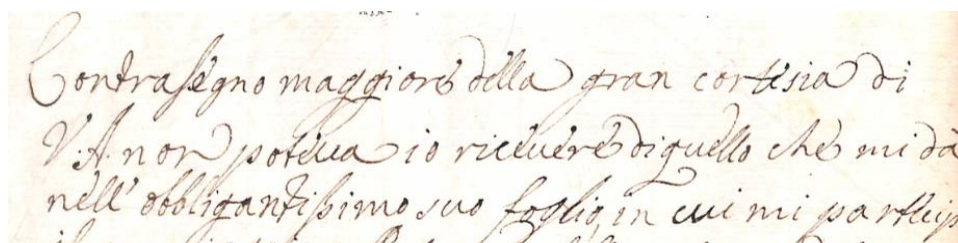 Contrasegno maggiore della gran cortesia di
V. A. non poteva io ricevere di quello che mi dà
nell' obbligantissimo suo foglio, in cui mi particip